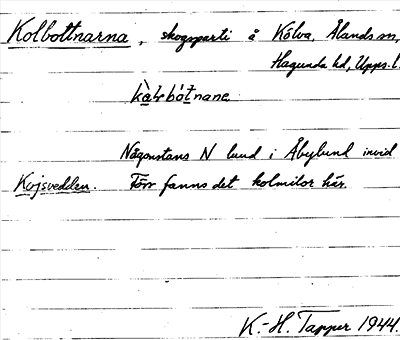 Kolbottnarna, skogsparti å Kölva, Ålands sn,
Hagunda hd, Upps. l.
kòlrbótnane.
Någonstans N lund i Åbylund invid
Kojsvedden. Förr fanns det kolmilor här.
K.-H. Tapper 1944.